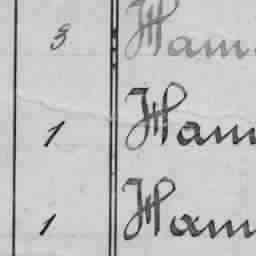 3 Ham
1 Ham
1 Ham